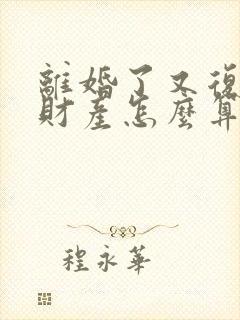 離婚了又復
財產怎麼算
程永華